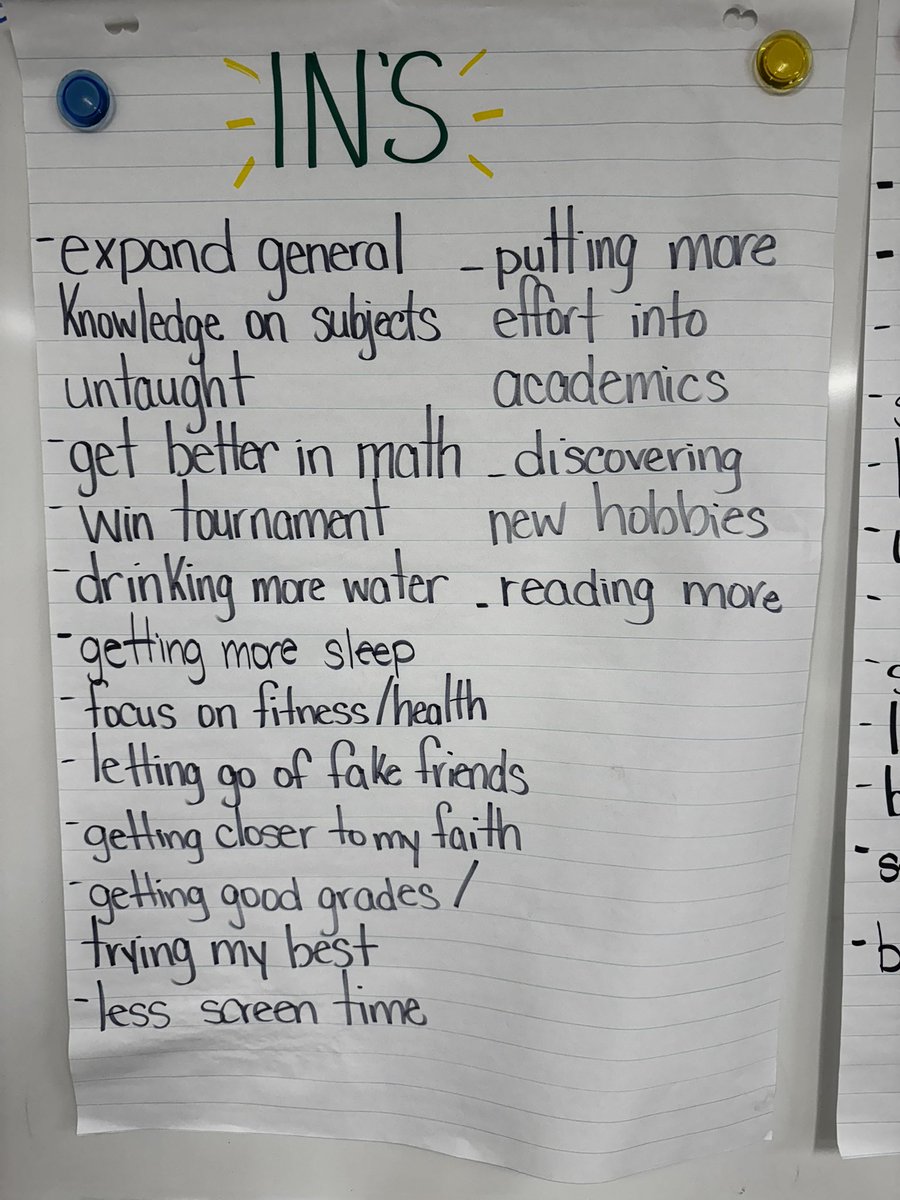 IN'S
-expand general
Knowledge on subjects
untaught
-get better in math
-win tournament
-drinking more water
-getting more sleep
-focus on fitness/health
-letting go of fake friends
-getting closer to my faith
-getting good grades/
trying my best
-less screen time
-putting more
effort into
academics
-discovering
new hobbies
-reading more